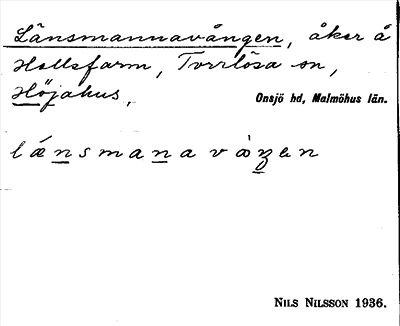 Länsmannavången, åker å
Hallsfarm, Torrlösa sn,
Höjahus,
Onsjö hd, Malmöhus län.
lænsmana vàŋen
NILS NILSSON 1936.